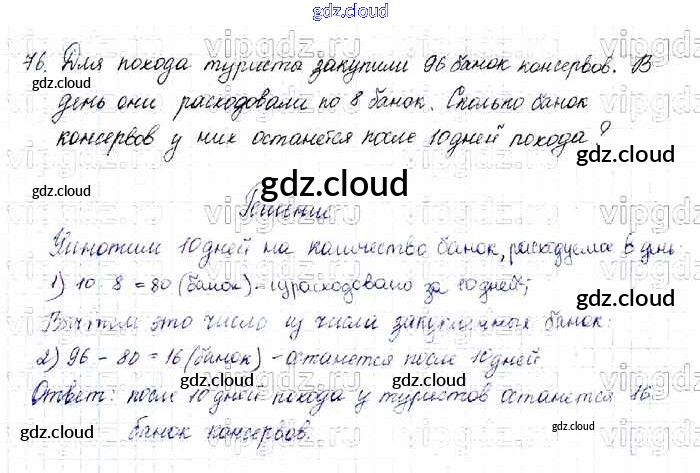 gdz.cloud
76. Для похода туристы закупили 96 банок консервов. В
день они расходовали по 8 банок. Сколько банок
консервов у них останется после 10 дней похода?
gdz.cloud
Решение
Умножим 10 дней на количество банок, расходуемое в день:
1) 10 · 8 = 80 (банок) - израсходовано за 10 дней;
Вычтем это число из числа закупленных банок:
2) 96 - 80 = 16 (банок) - останется после 10 дней
Ответ: после 10 дней похода у туристов останется 16
банок консервов.
gdz.cloud